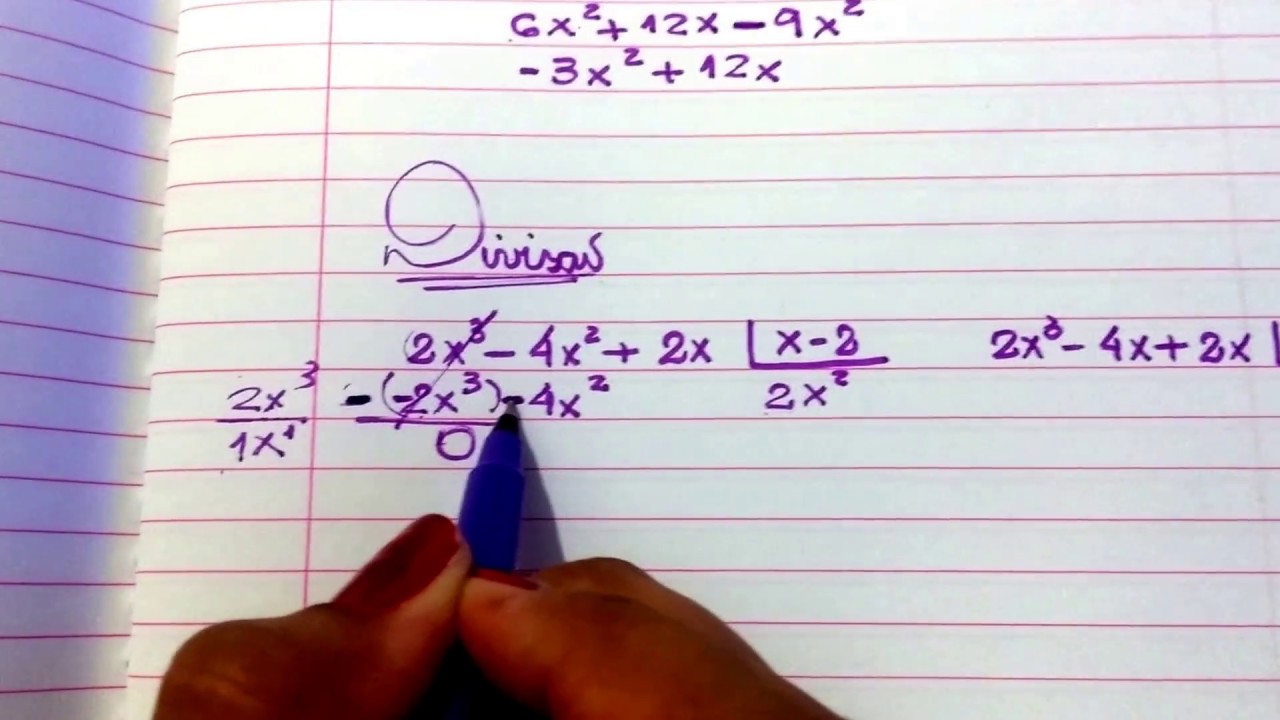 6x² + 12x - 9x²
-3x² + 12x
Divisão
2x³ - 4x² + 2x | x - 2 2x³ - 4x + 2x |
2x³ -(-2x³) - 4x² 2x²
1x¹ 0